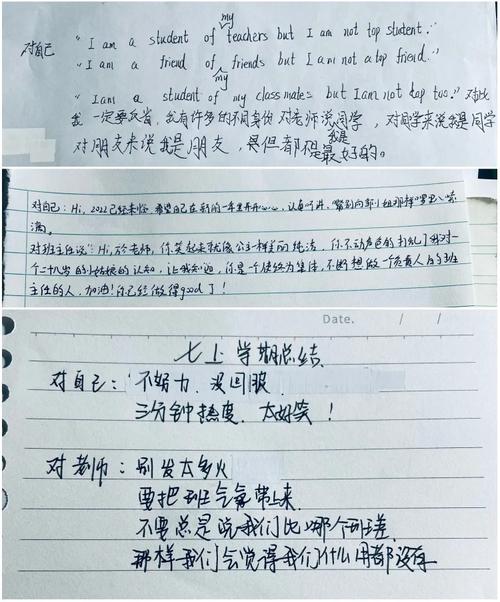 对自己 "I am a student of my teachers but I am not top student."
"I am a friend of my friends but I am not a top friend."
"I am a student of my classmates but I am not top too." 对此
我一定要反省,我有许多的不同身份 对老师说同学,对同学来说我是同学
对朋友来说我是朋友,但都不是我是最好的。
对自己:Hi,2022已经来临,希望自己在新的一年里开开心心,认真
满。
对班主任说:Hi,于老师,你笑起来就像公主一样美的纯洁,你不动声色的打乱了我对一
个二十八岁的小姑娘的认知,让我知道,你是一个使终为集体,不断想做一个负责人的好班
主任的人,加油!你已经做得good了!
Date. / /
七上学期总结
对自己:不努力,没回报
三分钟热度,太好笑!
对老师:别发太多火
要把班气氛带上来
不要总是说我们比哪个班差
那样我们会觉得我们什么用都没有